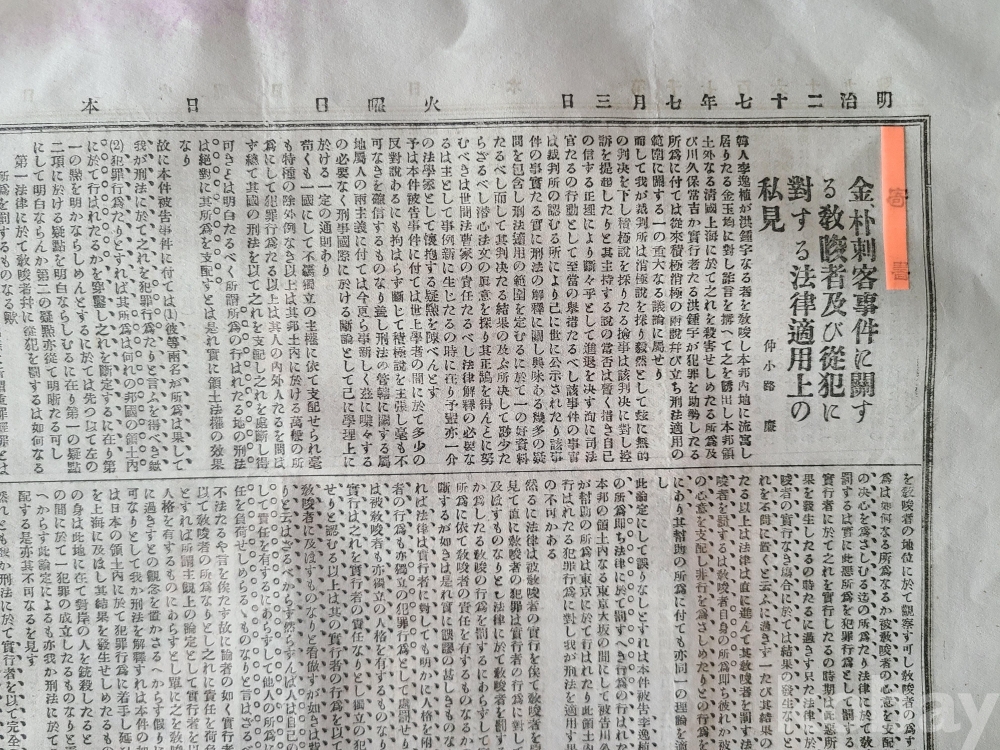 明治二十七年七月三日
火曜日
日本
寄書
金朴刺客事件に關す
る敎唆者及び從犯に
對する法律適用上の
私見
仲小路廉
韓人李逸植が洪鍾宇なる者を敎唆し本邦內地に流寓し
居りたる金玉均に對し詐言を搆へて之を誘出し本邦領
土外なる淸國上海に於て之を殺害せしめたる所爲及
び川久保常吉が實行者たる洪鍾宇が犯罪を幇助したる
所爲に付ては從來積極消極の兩說并び立ち刑法適用の
範圍に關する一の重大なる議論に屬せり
而して我が裁判所は消極說を採り毅然として玆に無罪
の判決を下し積極說を採りたる檢事は該判決に對し控
訴を提起したりと其主持する說の當否は暫く措き自己
の信する正理により斷々乎として進退を決す洵に司法
官たるの行動として至當の擧措たるべし該事件の事實
は裁判所の認むる所により已に世に公示されたり該事
件の事實たる實に刑法の解釋に關し興味ある幾多の疑
問を包含し刑法適用の範圍を定むるに於て一の好資料
たるべし而して其判決たる結果の及ぶ所決して尠少た
らざるべし潛心法文の眞意を探り其正鵠を得んとに努
むべきは世間法曹家の責任たるべし法律解釋の必要な
るは主として事例新に生したるの時に在り予輩亦一分
の法學家として懷抱する疑點を陳べんとす
予は本件被告事件に付ては世上學者の間に於て多少の
反對說あるにも拘はらず斷じて積極說を主張し毫も不
可なきを確信するものなり蓋し刑法の管轄に關する屬
地屬人の兩主義に付ては今更ら事新しく玆に喋々する
の必要なく刑事國際に於ける斷論として已に學理上に
於ける一定の通則あり
苟くも一國にして不羈獨立の主權に依て支配せられ毫
も特種の除外例なき以上は其邦土內に於ける萬種の所
爲にして犯罪行爲たる以上は其人の內外人たるを問は
ず總て其國の刑法を以て之を支配し之を處斷し得
可きとは明白たるべく所謂所爲の行はれたる地の刑法
は絕對に其所爲を支配すとは是れ實に領土法權の效果
なり
故に本件被告事件に付ては(1)彼等兩名が所爲は果して
我が刑法に於て之を犯罪行爲たりと言ふを得べき歟
(2)犯罪行爲たりとすれば其所爲は何れの邦國の領土內
に於て行はれたるかを穿鑿し之を斷定するに在り第
一の點を明かならしめんとするに於ては先づ以て左の
二項に於ける疑點を明白ならしむるに在り第一の疑點
にして明白ならんか第二の疑點亦從て明晰たる可し
第一 法律に於て敎唆者共に從犯を罰するは如何なる
所爲を罰するものなる歟
を敎唆者の地位に於て觀察す可し敎唆者の爲す
爲は如何なる所爲なるか被敎唆者の心意を支配
の決心を爲さしむる迄の所爲たり法律に於て敎
罰するは實に此惡所爲を犯罪行爲として罰する
實行者に於て之れを實行したるの時期は此惡所
果を發生したるの時たるに過きす只た法律に於
唆者の實行なき場合に於ては結果の發生なしと
れを不問に置くと云ふに過きず一たび其結果の
たる以上は法律は直に進んて其敎唆者を罰す法
唆者を罰するは敎唆者自身の所爲即ち彼れか被
の心意を支配し非行を爲さしめたりとの行爲を
にあり其幇助の所爲に付ても亦同一の理論を適
し
此論定にして誤りなしとすれは本件被告李逸植
の所爲即ち法律に於て罰すへき行爲の行はれた
本邦の領土內なる東京大坂の間にして被告川久
が幇助の所爲は東京に於て行はれたり此領土內
行はれたる犯罪行爲に對し我が刑法を適用す果
の不可かある
然るに法律は被敎唆者の實行を俟て敎唆者を罰
見て直に敎唆者の犯罪は實行者の行爲に對して
及ぼすものなりとし法律に於て敎唆者を罰する
か爲したる敎唆の行爲を罰するにあらずして他
所爲に依て敎唆者の責任を有するものなりと論
斷するが如きは是れ實に誤謬の甚しきものな
れば法律は實行者に對しても明かに人格を附與
者の行爲も亦獨立の犯罪行爲として處罰せり
は被敎唆者も亦獨立の人格を有するものにして
實行は之れを實行者の責任なりとし獨立の犯
せりと認むる以上は其の實行者の行爲を以て
敎唆者に及ぼすものなりと看做すが如きは實
りと云はざるべからず然らずんば人は自己の
して責任を有するにあらずして他人の所爲に
任を負荷せしめらるゝものなりと言はざる可
不法たるや言を俟たず故に論者の如く實行者
以て敎唆者の所爲なりとし之れに責任を荷負
とすれば所謂主觀上の論定として實行者を以
人格を有するものにあらずとし單に之を敎唆
に過ぎずとの觀念を置かざるべからず假りに
可なりとして我が刑法を解釋すれは本件の如
は日本の領土內に於て犯罪行爲に着手し延
を上海に及ぼし其結果を發生せしめたるもの
の身は此地に在て對岸の人を銃殺したると
の間に於て一犯罪の成立したるものなりとせ
へからす此場合に於けるも亦我か刑法に於て
配するは是亦其不可なるを見す